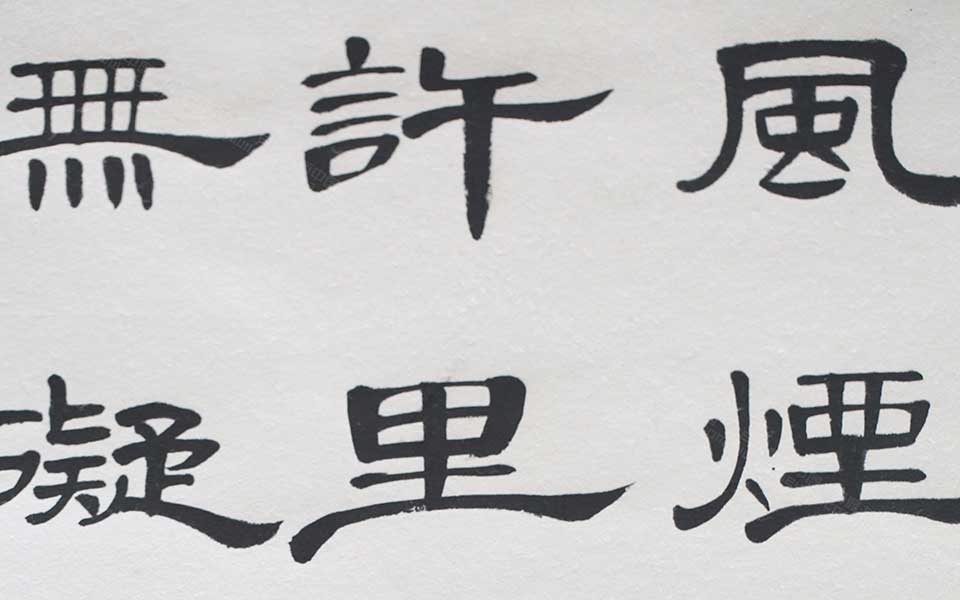 風煙
許里
無礙